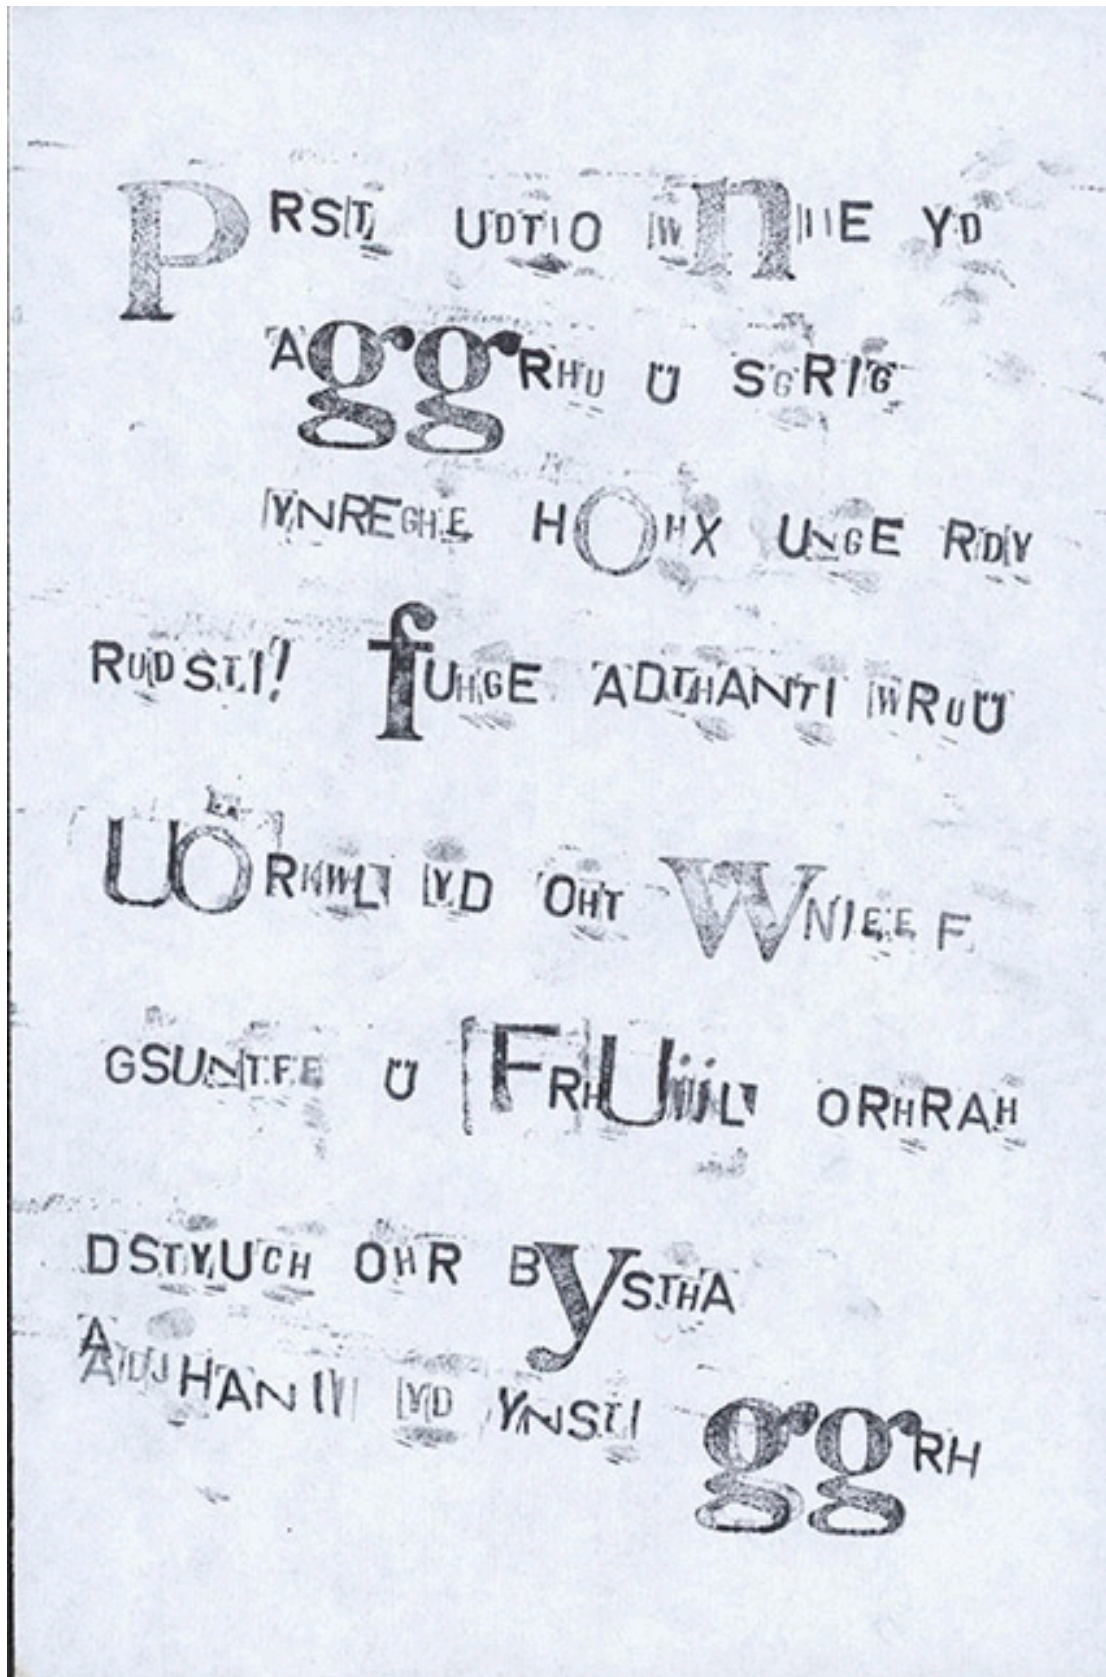 pRSIT UDTIO WnIIE YD
AggRHU Ü SGRIG
YNREGHE HOHX UNGE RIDIY
RUIDSTI! fUHGE ADTHANTI WRUÜ
YD OHT WNIEEF
GSUNTFE Ü ORHRAH
DSTYUCH OHR BySTHA
YD YNSTI ggRH